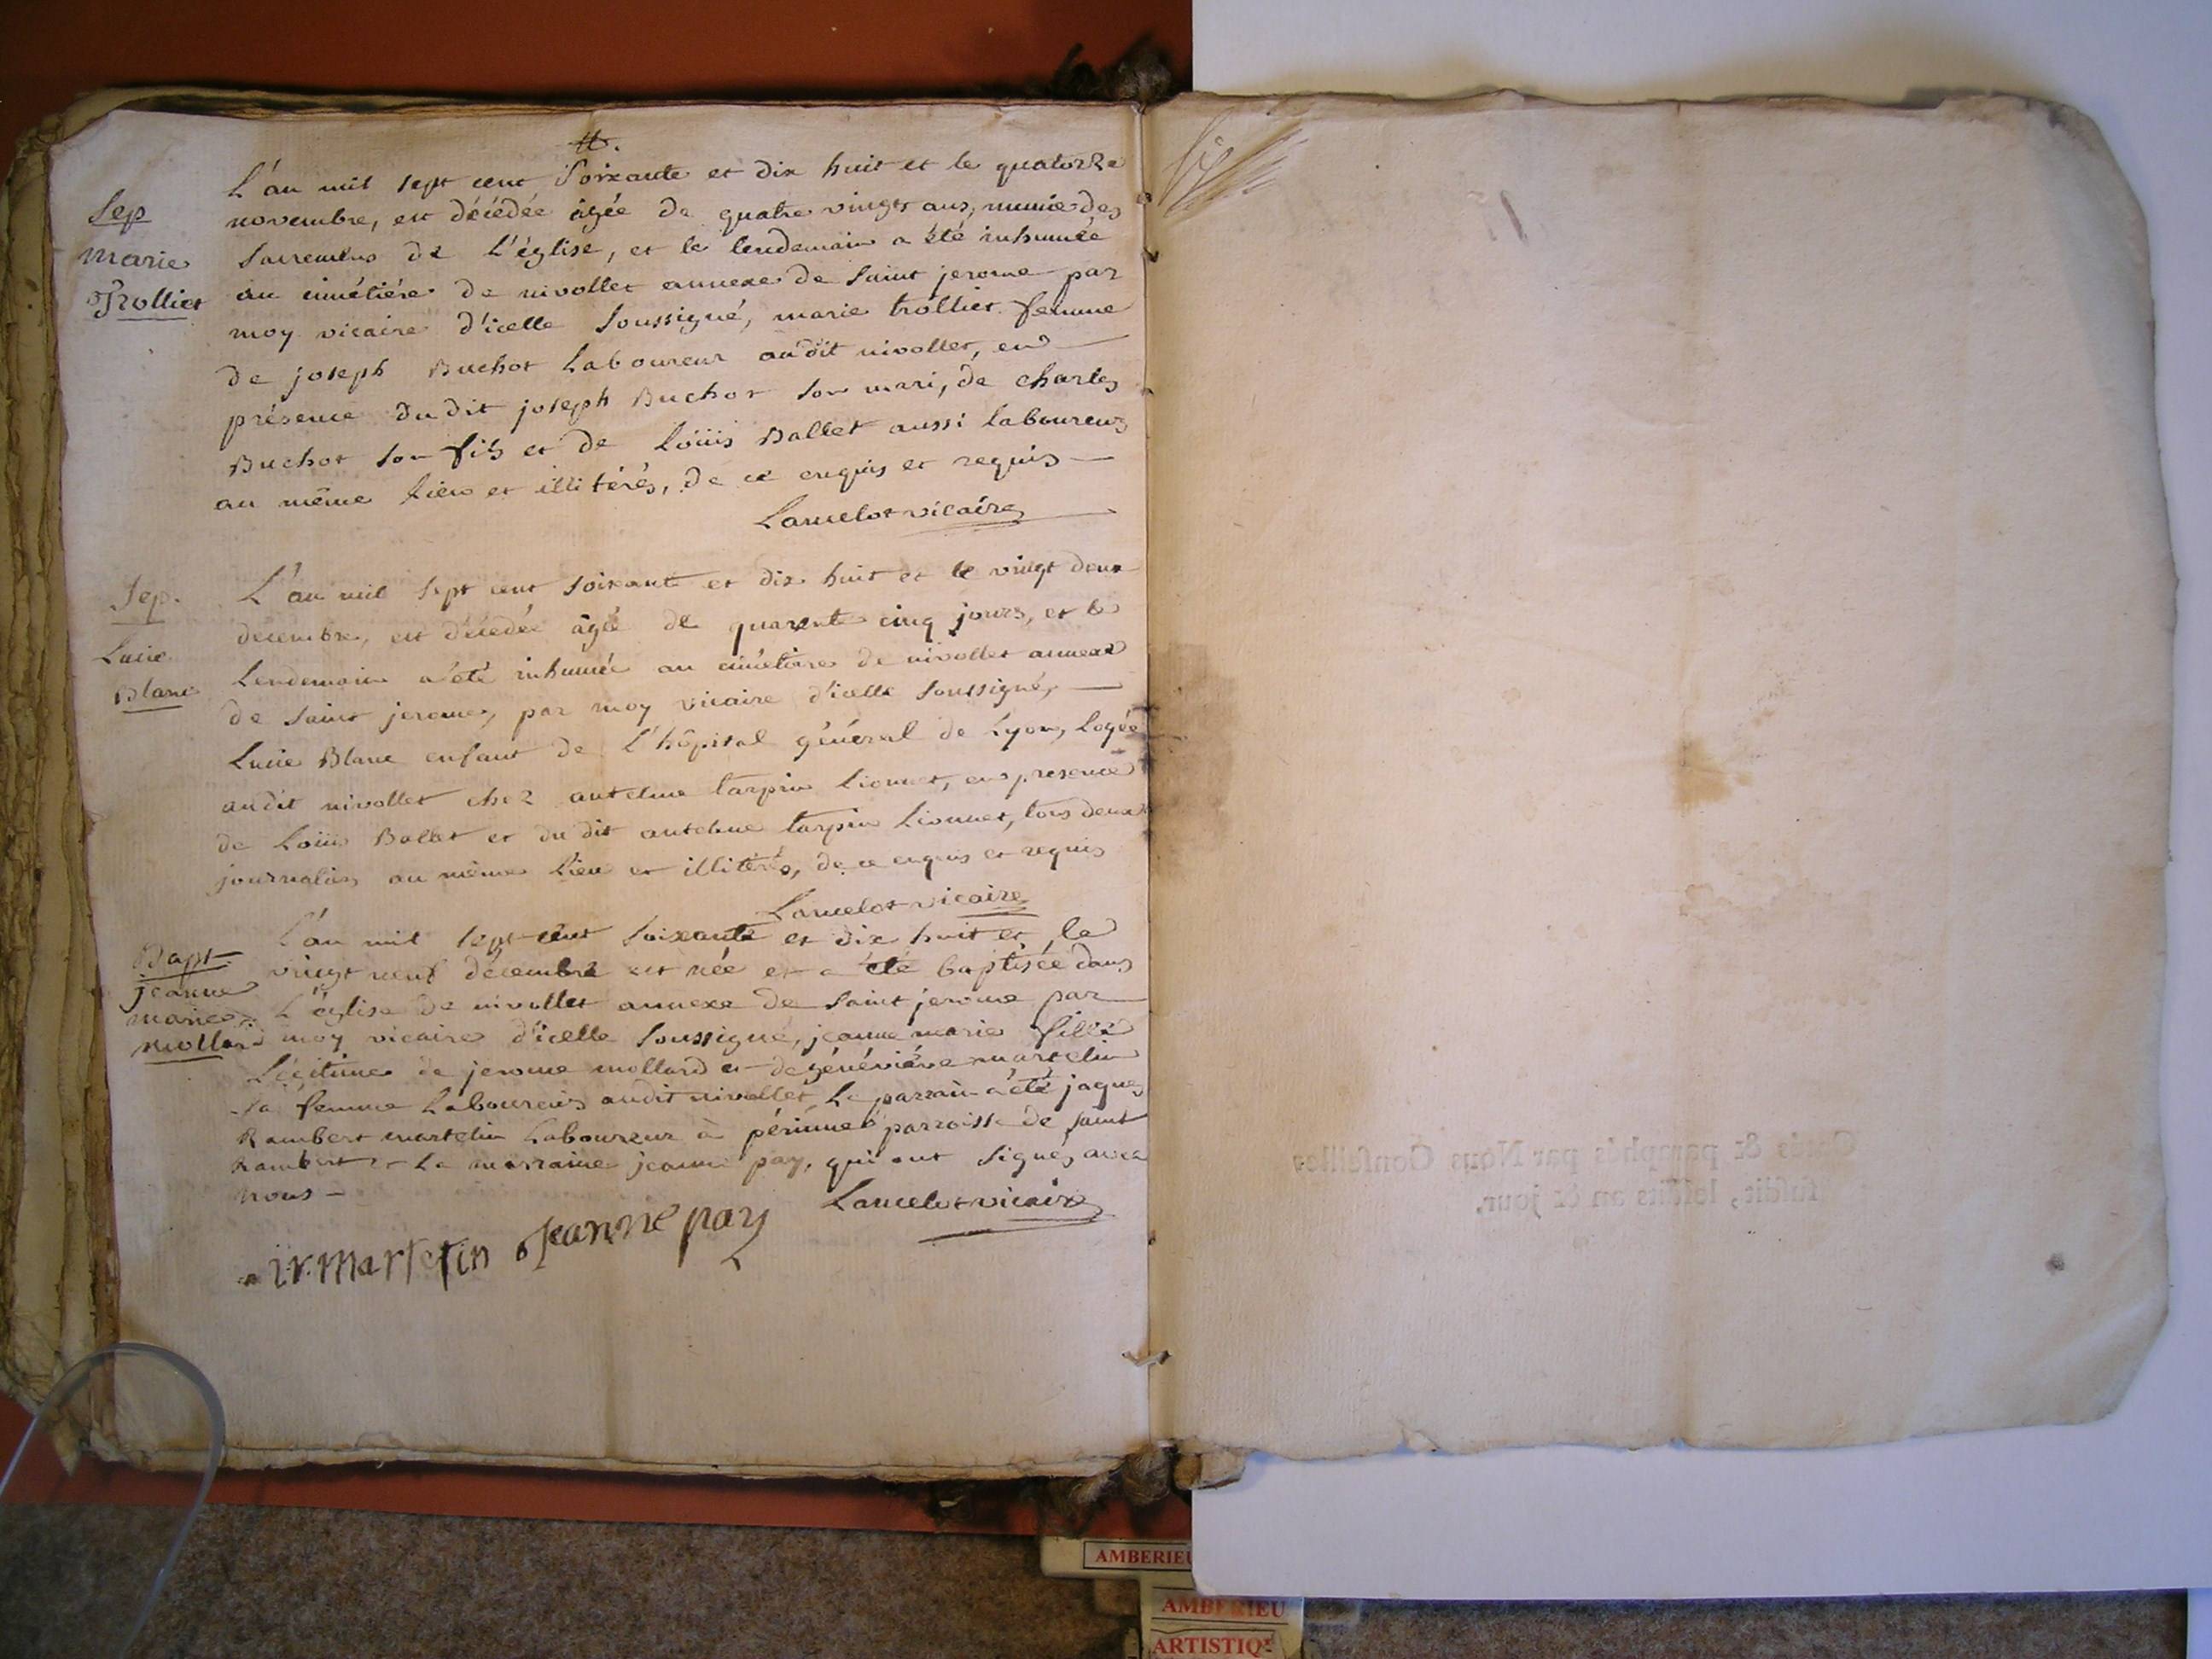 L'an mil sept cent soixante et dix huit et le quatorze
Sep
novembre, est décédée âgée de quatre vingts ans, munie des
marie
sacremens de L'église, et le lendemain a été inhumée
Trolliet
au cimétiére de nivollet annexe de saint jerome par
moy vicaire d'icelle soussigné, marie trolliet femme
de joseph Buchot Laboureur audit nivollet, en
présence dudit joseph Buchot son mari, de charles
Buchot son fils et de Loüis Ballet aussi laboureurs
au même lieu et illitérés, de ce enquis et requis
Lancelot vicaire
Sep.
L'an mil sept cent soixante et dix huit et le vingt deux
decembre, est décedée âgée de quarente cinq jours, et le
Lucie
Lendemain a été inhumée au cimétiere de nivollet annexe
Blanc
de saint jerome, par moy vicaire d'icelle soussigné,
Lucie Blanc enfant de L'hôpital général de Lyon, Logée
audit nivollet chez antelme tarpin Lionnet, en presence
de Loüis Ballet et du dit antelme tarpin Lionnet, tous deux
journaliers au même lieu et illitérés, de ce enquis et requis
Lancelot vicaire
L'an mil sept cent soixante et dix huit et le
Bapt.
vingt neuf décembre est née et a été baptisée dans
jeanne
L'église de nivollet annexe de saint jerome par
marie
mollard
moy vicaire d'icelle soussigné, jeanne marie fille
Légitime de jerome mollard et de généviéve martelin
sa femme Laboureurs audit nivollet, Le parrain a été jaques
Rambert martelin Laboureur à parroisse de saint
Rambert et La marraine jeanne pay, qui ont signés avec
nous
Lancelot vicaire
martelin Jeanne pay
Cotés & paraphés par Nous Conseiller
susdit, lesdits an & jour.
AMBERIEU
AMBERIEU
ARTISTIQUE